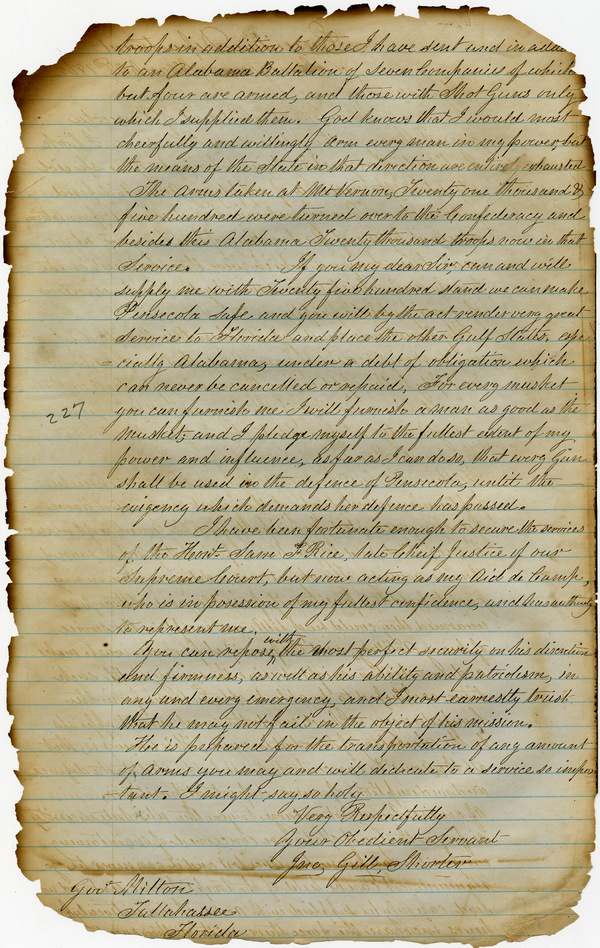 troops in addition to those I have sent and in
to an Alabama Battalion of Seven Companies of which
but four are armed, and those with Shot Guns only
which I supplied them. God knows that I would most
cheerfully and willingly arm every man in my power, but
the means of the State in that direction are entirely exhausted
The arms taken at Mt Vernon, Twenty one thousand &
five hundred were turned over to the Confederacy and
besides this Alabama Twenty thousand troops now in that
Service. If you my dear Sir, can and will
supply me with Twenty five hundred stand we can make
Pensecola safe and you will by the act render very great
Service to Florida and place the other Gulf States, espe
cially Alabama, under a debt of obligation which
can never be cancelled or repaid, For every musket
you can furnish me I will furnish a man as good as the
musket, and I pledge myself to the fullest extent of my
power and influence, as far as I can do so, that every Gun
shall be used in the defence of Pensecola, until the
exigency which demands her defence has passed.
227
I have been fortunate enough to secure the services
of the Honl. Sam F. Rice, late Cheif Justice of our
Supreme Court, but now acting as my Aid de Camp,
who is in posession of my fullest confidence, and has authority
to represent me.
You can repose, with the most perfect security on his discretion
and firmness, as well as his ability and patriotism, in
any and every emergency, and I most earnestly trust
that he may not fail in the object of his mission.
He is prepared for the transportation of any amount
of Arms you may and will dedicate to a service so impor
tant. I might say so holy
Very Respectfully
Your Obedient Servant
Jno, Gill, Shorter
Govr Milton
Tallahassee
Florida